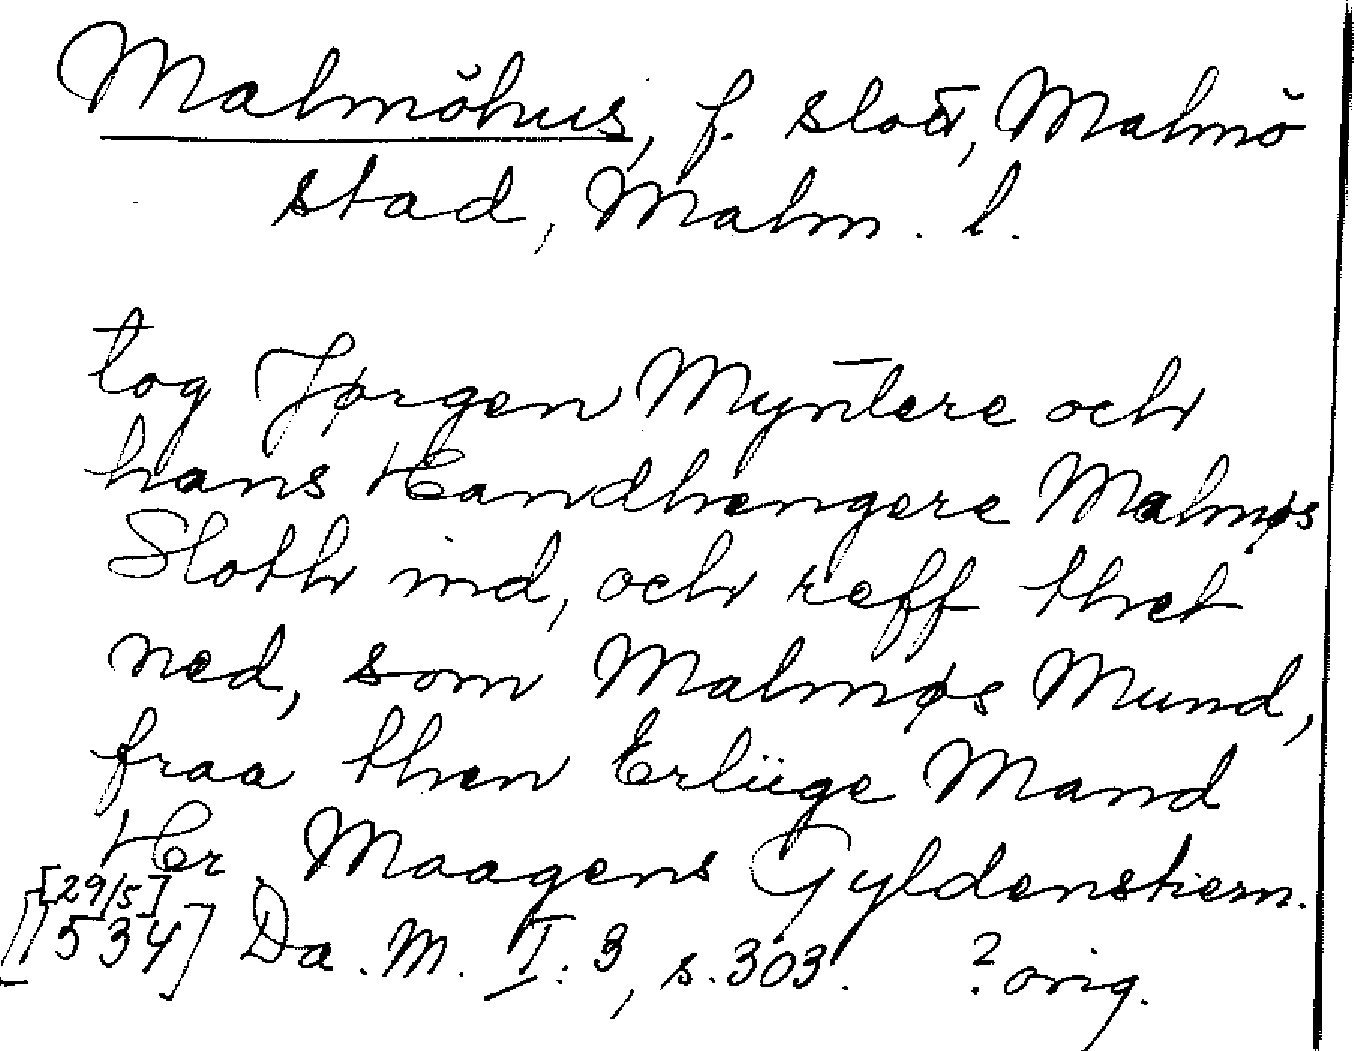 Malmöhus, f. slott, Malmö
stad, Malm. l.
tog Jørgen Myntere och
hans Handhengere Malmøs
Sloth ind, och reff thet
ned, som Malmøs Mund,
fraa then Erliige Mand
Her Maagens Gyldenstiern.
[29/5]
[1534] Da. M. I:3, s. 303. ? orig.